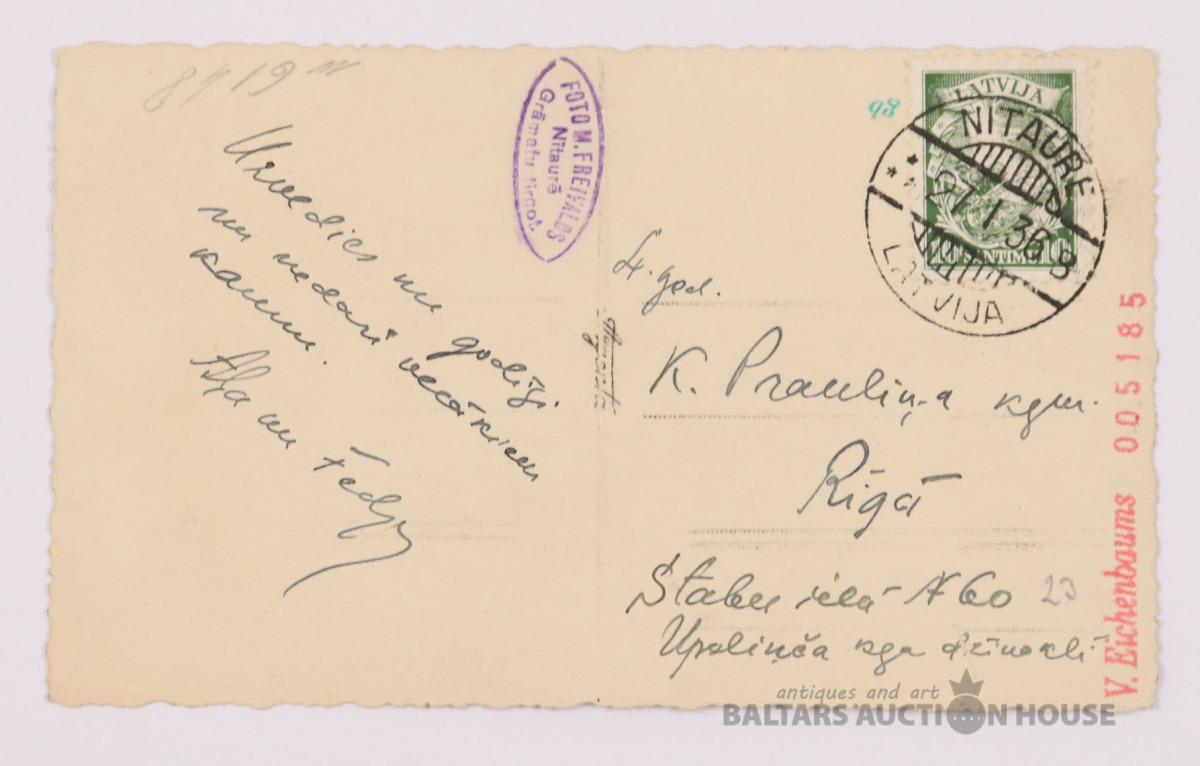 8419
FOTO M. FREIVALDS
Nītaurē
Grāmatu
Uzvedies un godīgi
un nedari vecākiem
kaunu.
un
98
LATVIJA
10 SANTIMU 10
NĪTAURE
27 I 36 8
LATVIJA
god.
K. Prauliņ-a kgm.
Rīgā
Stabu ielā N 60 23
Upeliņča kga dzīvoklī
V. Eichenbaums 005185
antiques and art
BALTARS AUCTION HOUSE